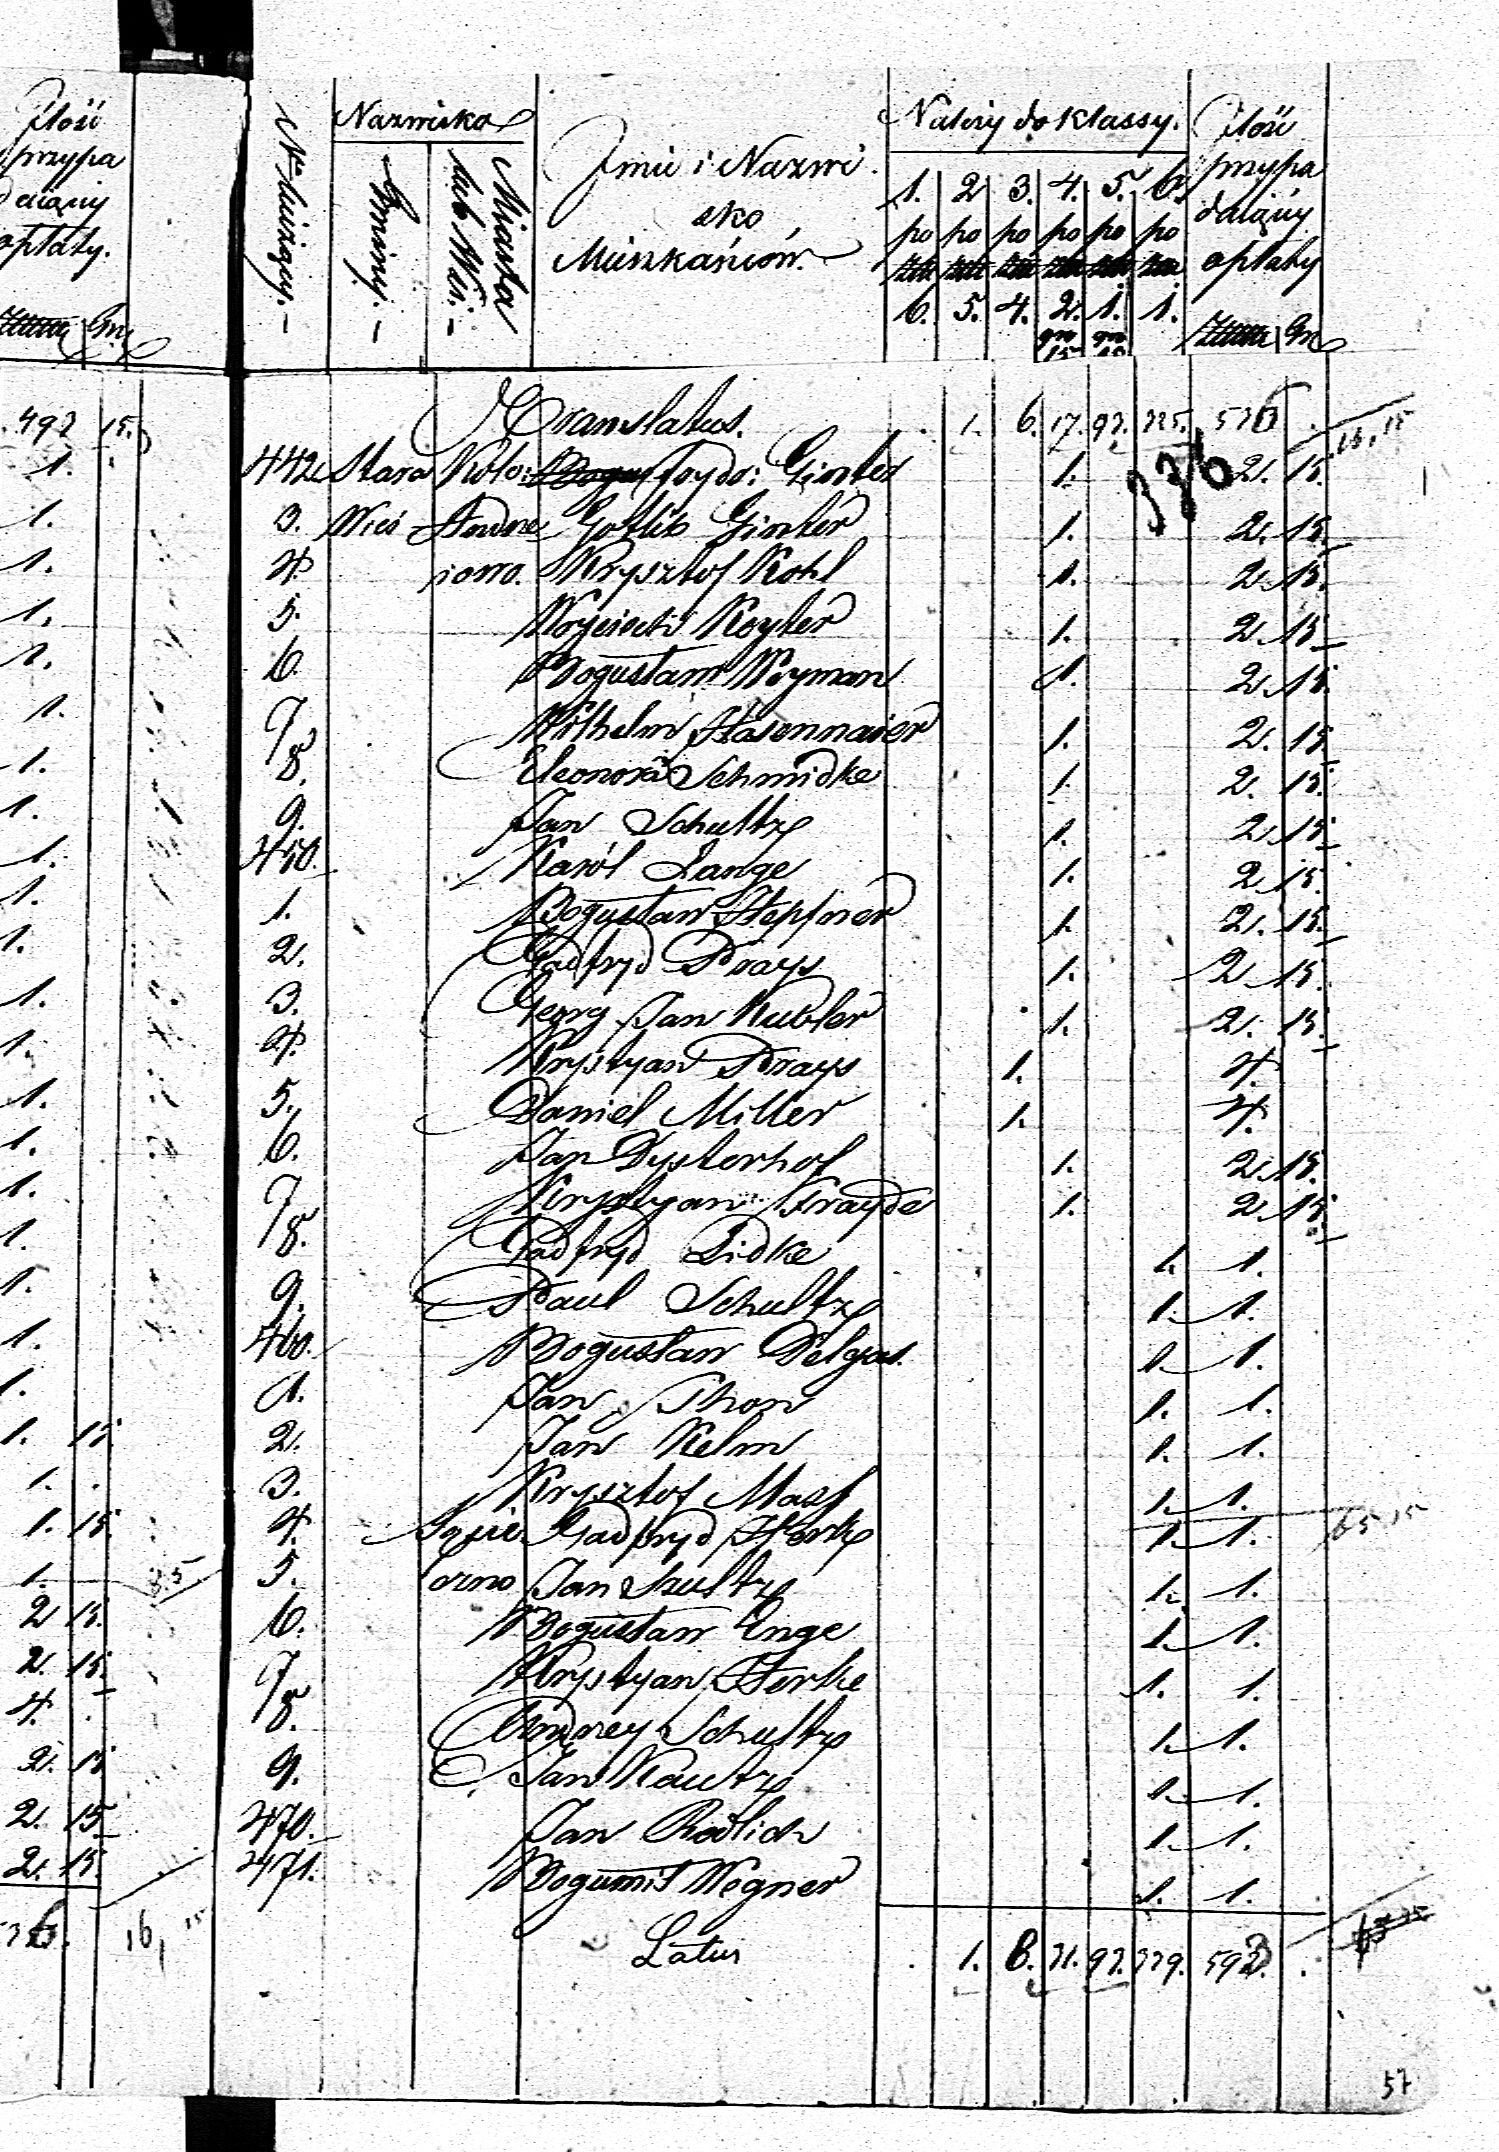 Ilość
przypa
daiący
opłaty.
Gr.
492 15.
1.
1.
1.
1.
1.
1.
1.
1.
1.
1.
1.
1.
1.
1.
1.
1.
1.
1.
1.
1.
1. 15.
1.
1. 15.
1.
2 15.
2. 15.
4.
2. 15
2. 15
2. 15.
16, 15
Nazwisko
Gminy.
Miasta lub Wsi.
Imie i Nazwi
sko
Mieszkańców.
Należy do Klassy.
1. 2 3. 4. 5. 6.
po po po po po po
6. 5. 4. 2. 1. 1.
gr 15 gr
Ilość
przypa
daiący
opłaty
Gr
Translatus. 1. 6. 17. 92. 16. 15
336
442 Stara Kolo: Ginter 1. 2. 15.
3. Wieś Andrze Gotlib Ginter 1. 2. 15.
4. iowo. Krysztof Kohl 1. 2. 15.
5. Woyciech Koyler 1. 2. 15
6. Bogusław Weyman 1. 2. 15.
7 Wilhelm Hasenmaier 1. 2. 15
8. Eleonora Schmidke 1. 2. 15.
9. Jan Schultz 1. 2. 15
450. Karól Lange 1. 2 15.
1. Bogusław Hepfner 1. 2. 15.
2. Gadfryd Prays 1. 2. 15.
3. Georg Jan Kubler 1. 2. 15.
4. Krystyan Prays 1. 4.
5. Daniel Miller 1. 4.
6. Jan Dysterhof 1. 2. 15.
7 Krystyan 1. 2. 15.
8. Gadfryd Lidke 1. 1.
9. Paul Schultz 1. 1.
460. Bogusław 1. 1.
1. Jan Thon 1. 1.
2. Jan Kelm 1. 1.
3. Krysztof Mass 1. 1.
4. Gadfryd 1. 1. 65 15
5. orno Jan Szultz 1. 1.
6. Bogusław Enge 1. 1.
7 Krystyan Herke 1. 1.
8. Andrzey Schultz 1. 1.
9. Jan Kautz 1. 1.
470. Jan Rødlich 1. 1.
471. Bogumił Wegner 1. 1.
Latus 1. 8. 31. 92. 339. 593.
57